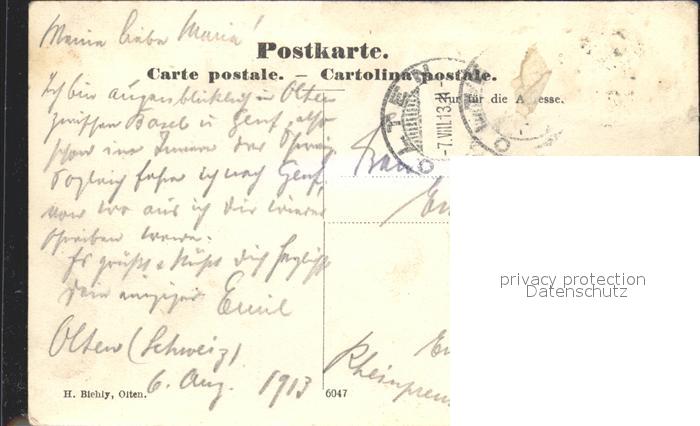 Meine liebe Maria!
Postkarte.
Carte postale. — Cartolina postale.
Nur für die Adresse.
OLTEN
-7.VIII.13.
Ich bin augenblicklich in Olten
zwischen Basel u Genf, also
schon im Innern der Schweiz.
Sogleich fahre ich nach Genf,
von wo aus ich Dir wieder
schreiben werde.
Es grüßt u küßt Dich herzlichst
Dein einziger Emil
Olten (Schweiz)
6. Aug. 1913
Frau
Rheinpreu
H. Biehly, Olten.
6047
privacy protection
Datenschutz